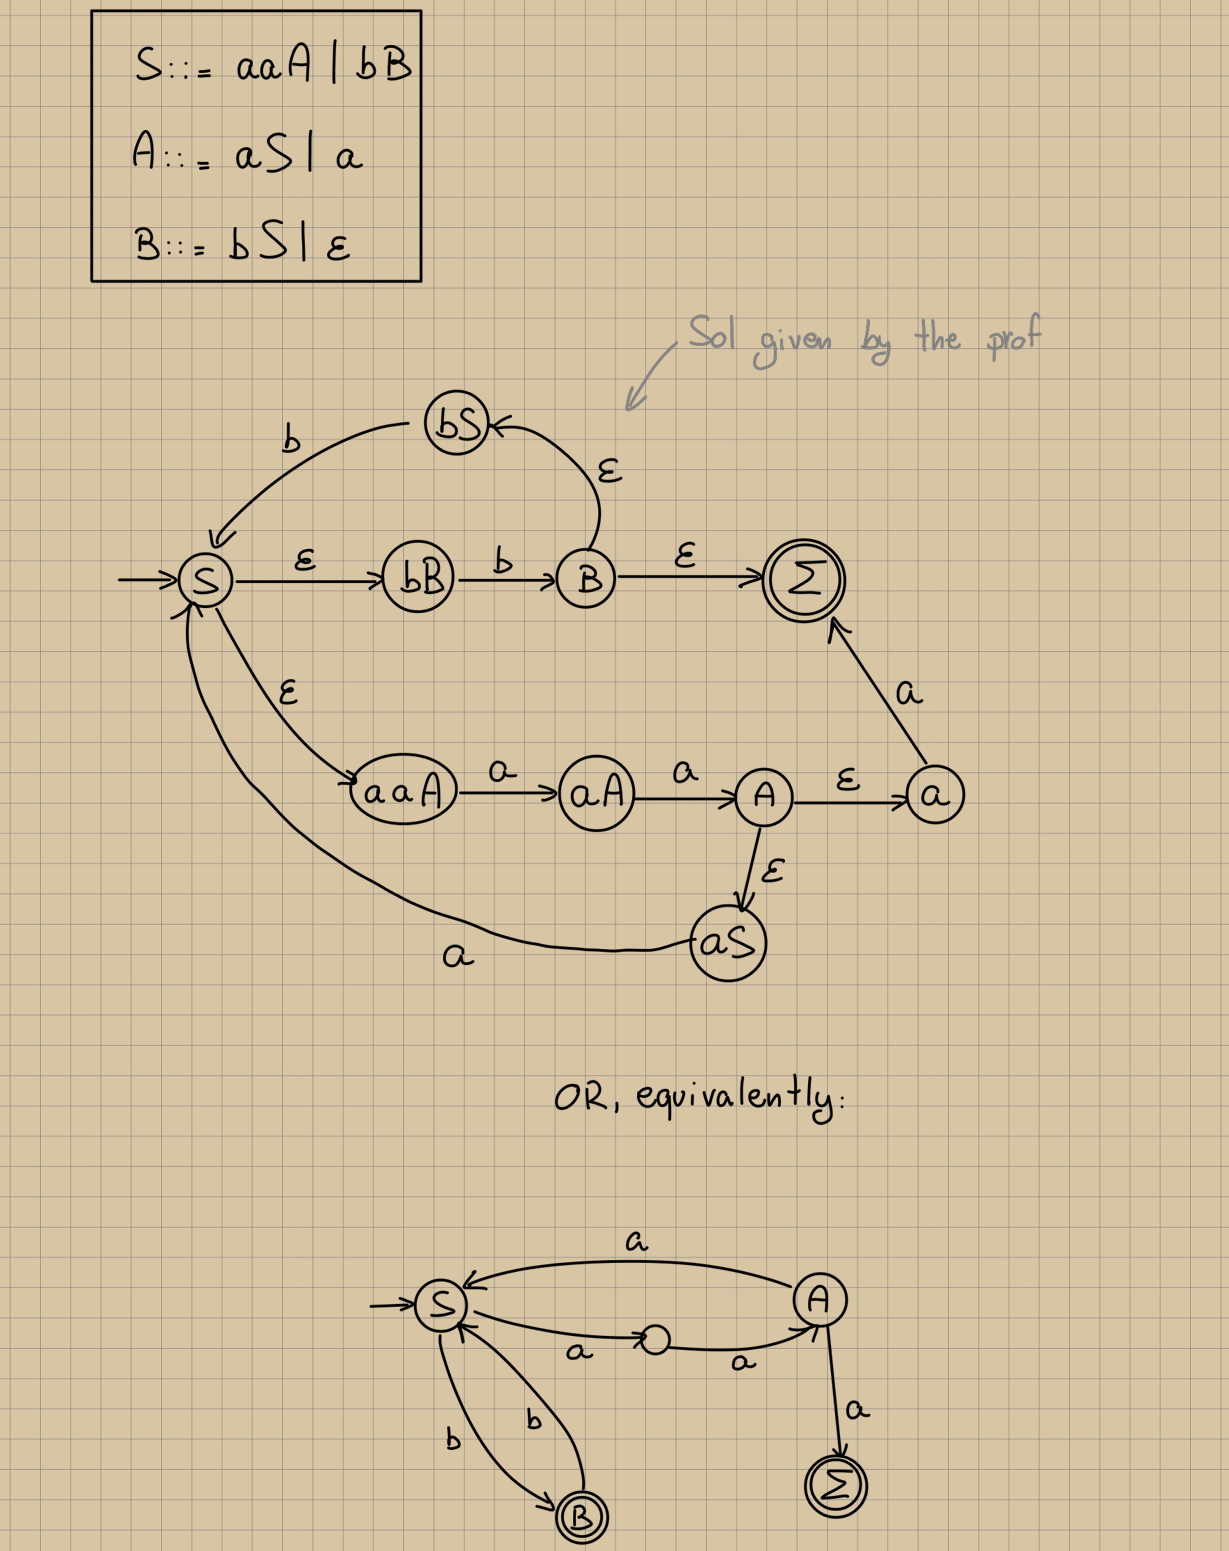 S::= aaA | bB
A::= aS | a
B::= bS | ε
Sol given by the prof
bS
b
ε
S
ε
bB
b
B
ε
Σ
ε
a
aaA
a
aA
a
A
ε
a
ε
aS
a
OR, equivalently:
a
S
A
a
a
b
b
a
Σ
B